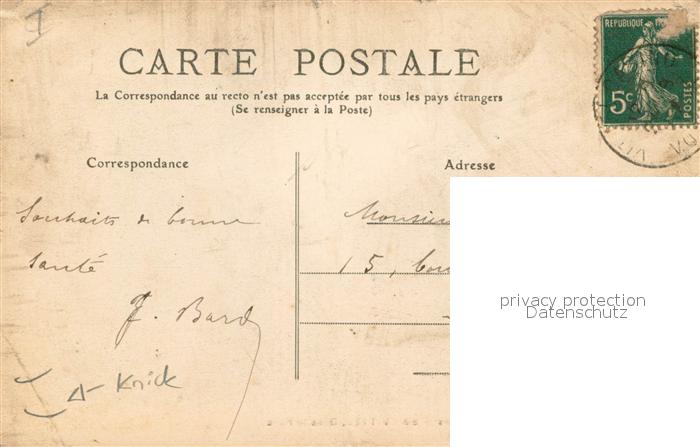 I
CARTE POSTALE
La Correspondance au recto n'est pas acceptée par tous les pays étrangers
(Se renseigner à la Poste)
REPUBLIQUE
5c
POSTES
Correspondance
Adresse
Souhaits de bonne
santé
F. Bard
Knick
Monsieu
15, Cou
privacy protection
Datenschutz